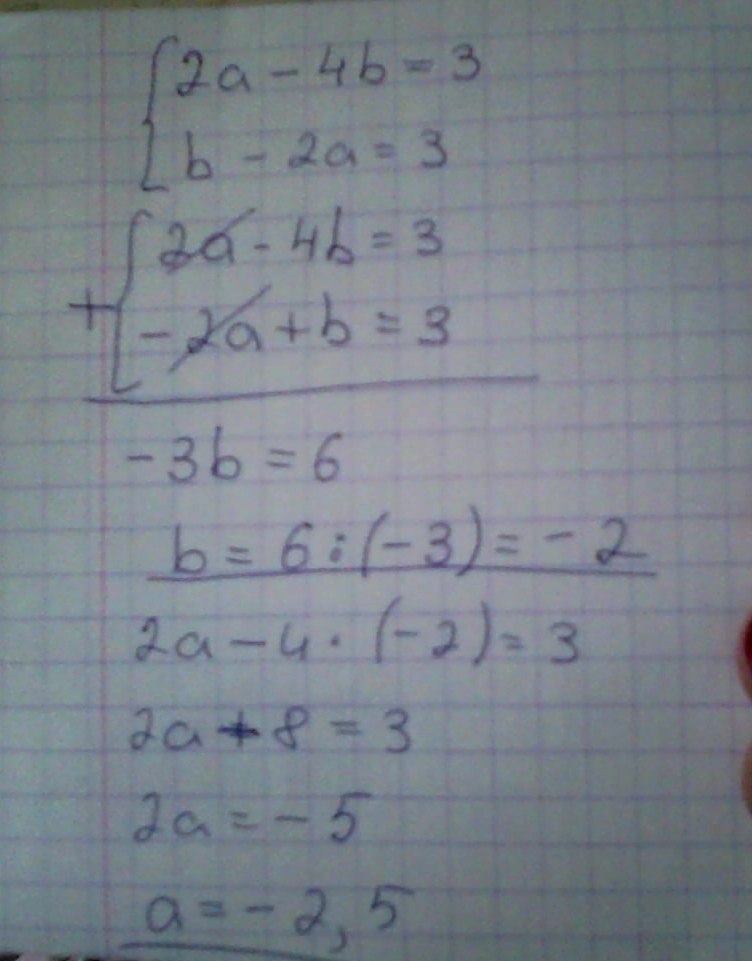 {2a - 4b = 3
b - 2a = 3
+{2a - 4b = 3
-2a + b = 3
-3b = 6
b = 6 : (-3) = -2
2a - 4 · (-2) = 3
2a + 8 = 3
2a = -5
a = -2,5